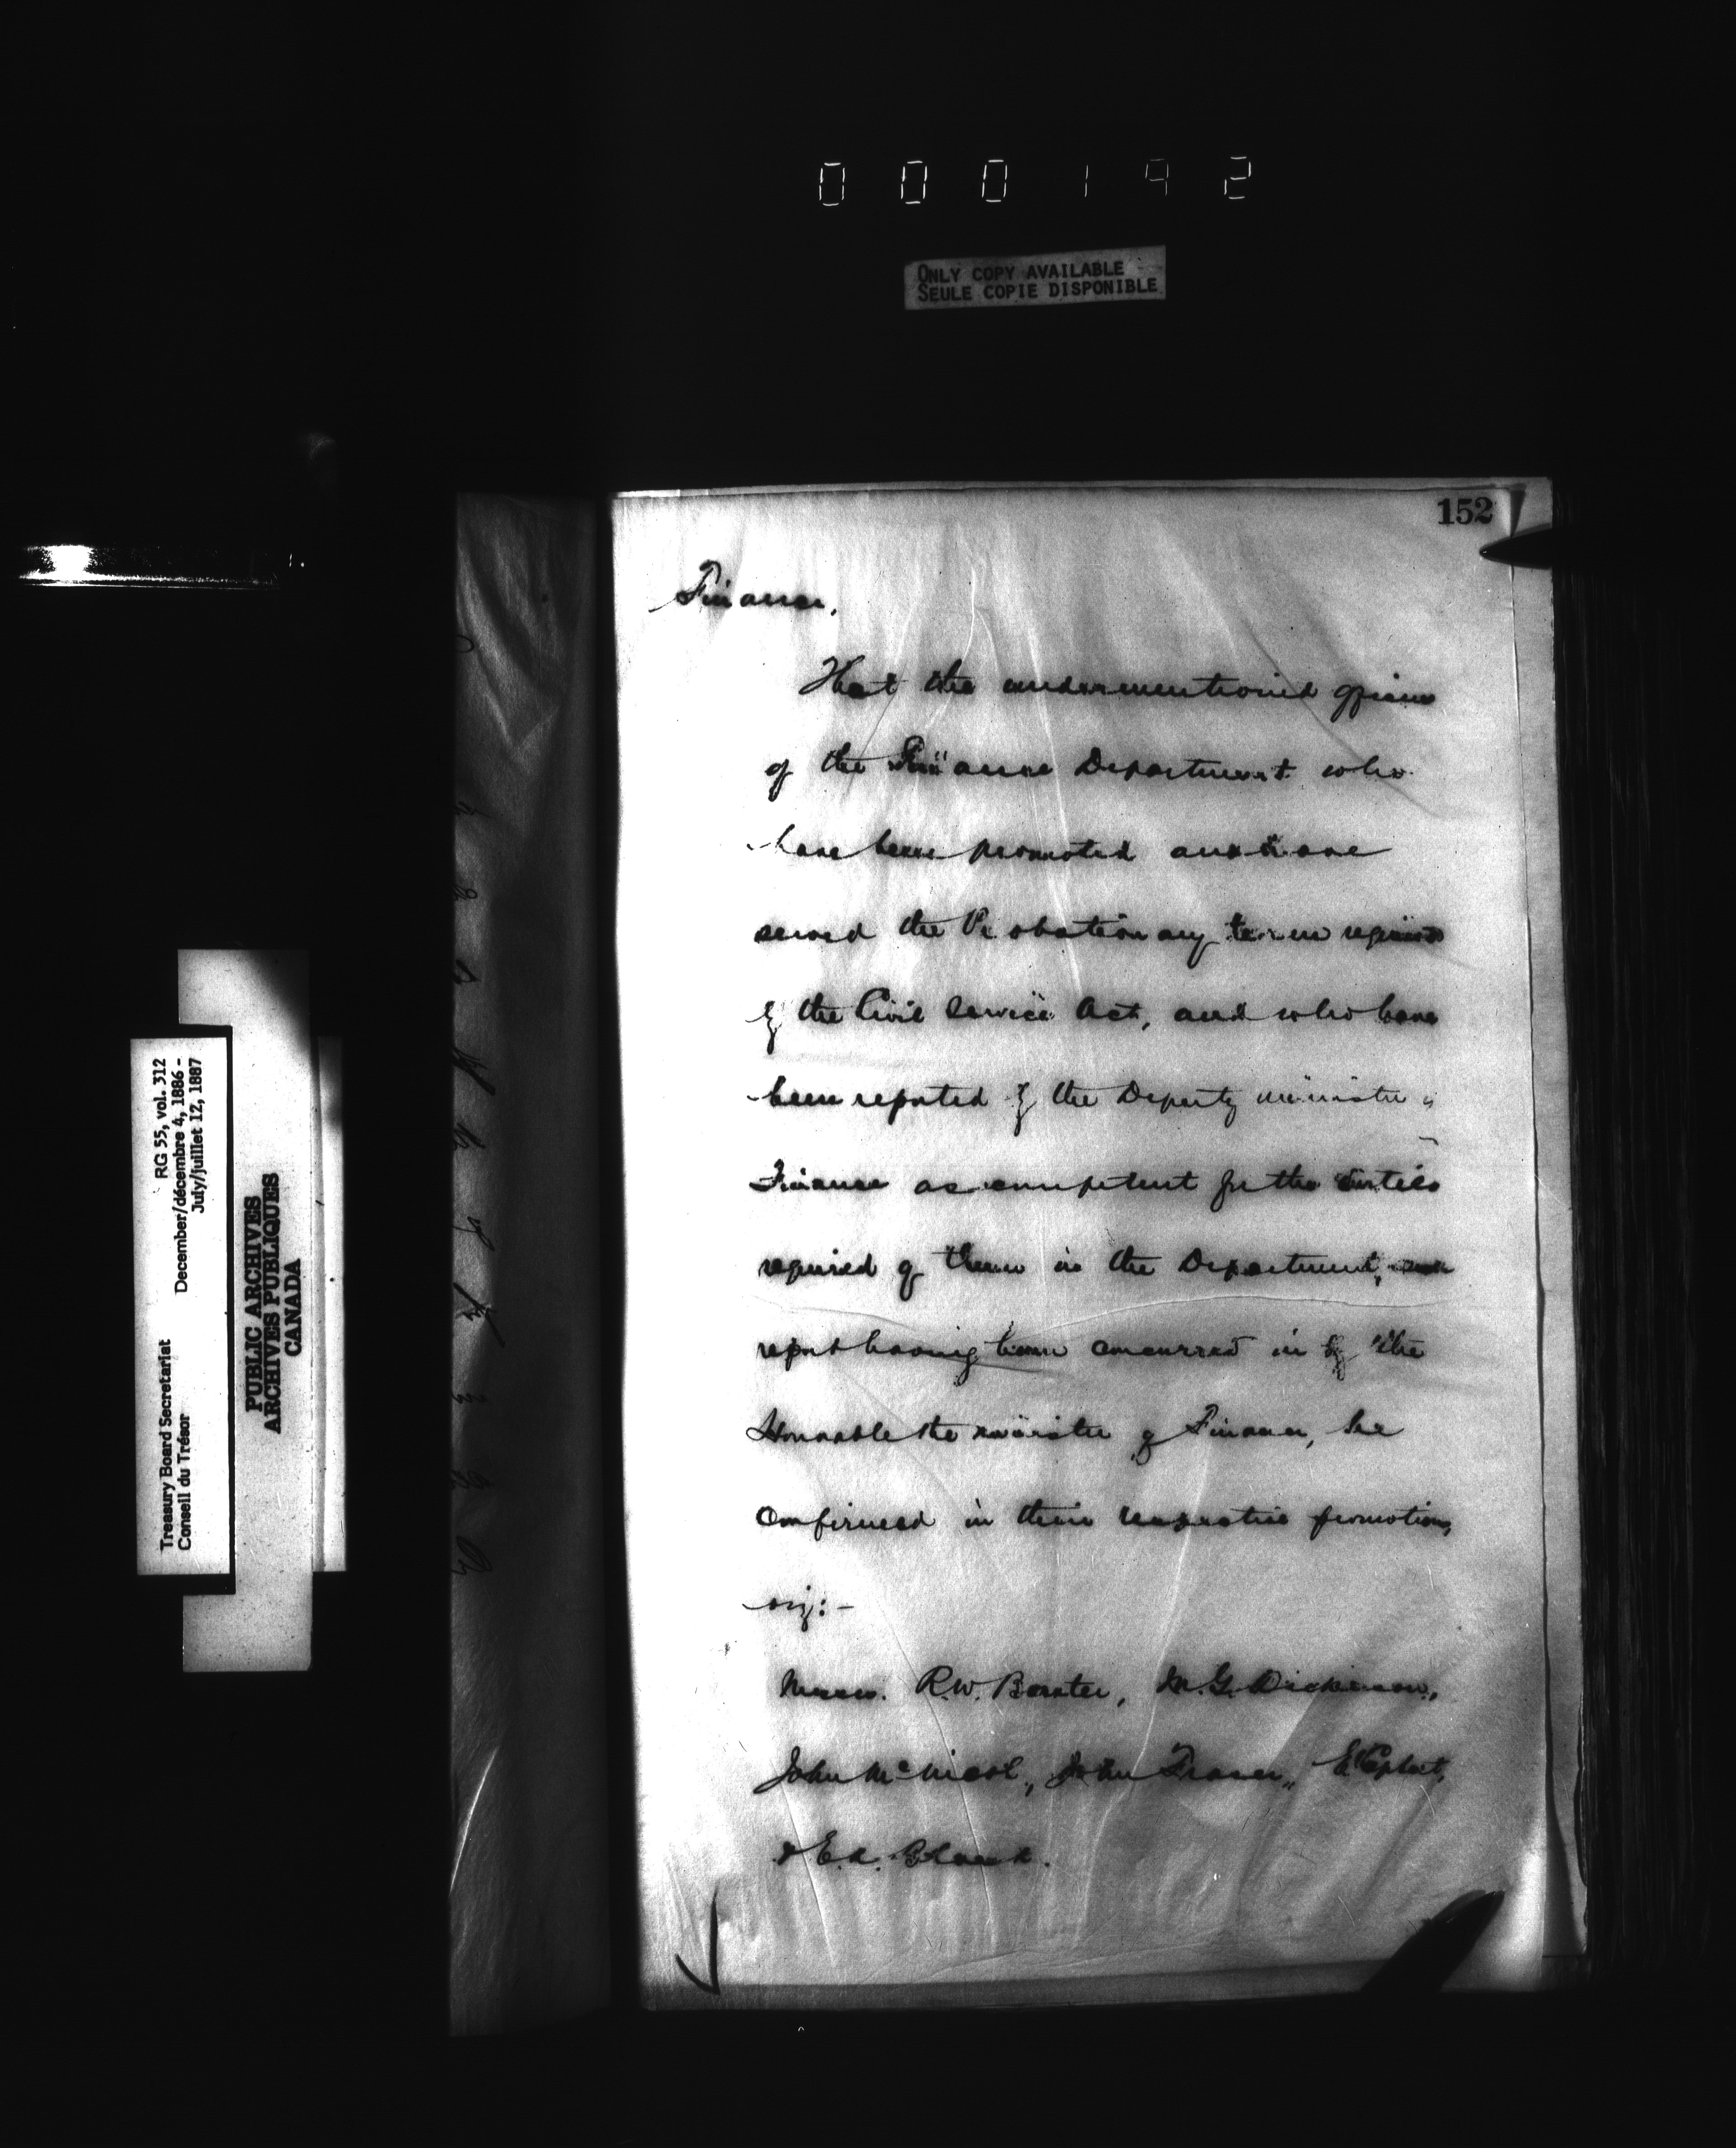 000192
ONLY COPY AVAILABLE
SEULE COPIE DISPONIBLE
152
Finance,
That the undermentioned officers
of the Finance Department who
have been promoted and have
served the Probationary term required
by the Civil Service Act, and who have
been reported by the Deputy Minister of
Finance as competent for the duties
required of them in the Department,
report having been concurred in by the
Honorable the Minister of Finance, be
confirmed in their respective promotions,
viz:-
Messrs. R.W. Baxter, M.G. Dickieson,
John McNicol, John Fraser,
& Ed.
RG 55, vol. 312
Treasury Board Secretariat December/décembre 4, 1886 -
Conseil du Trésor July/juillet 12, 1887
PUBLIC ARCHIVES
ARCHIVES PUBLIQUES
CANADA